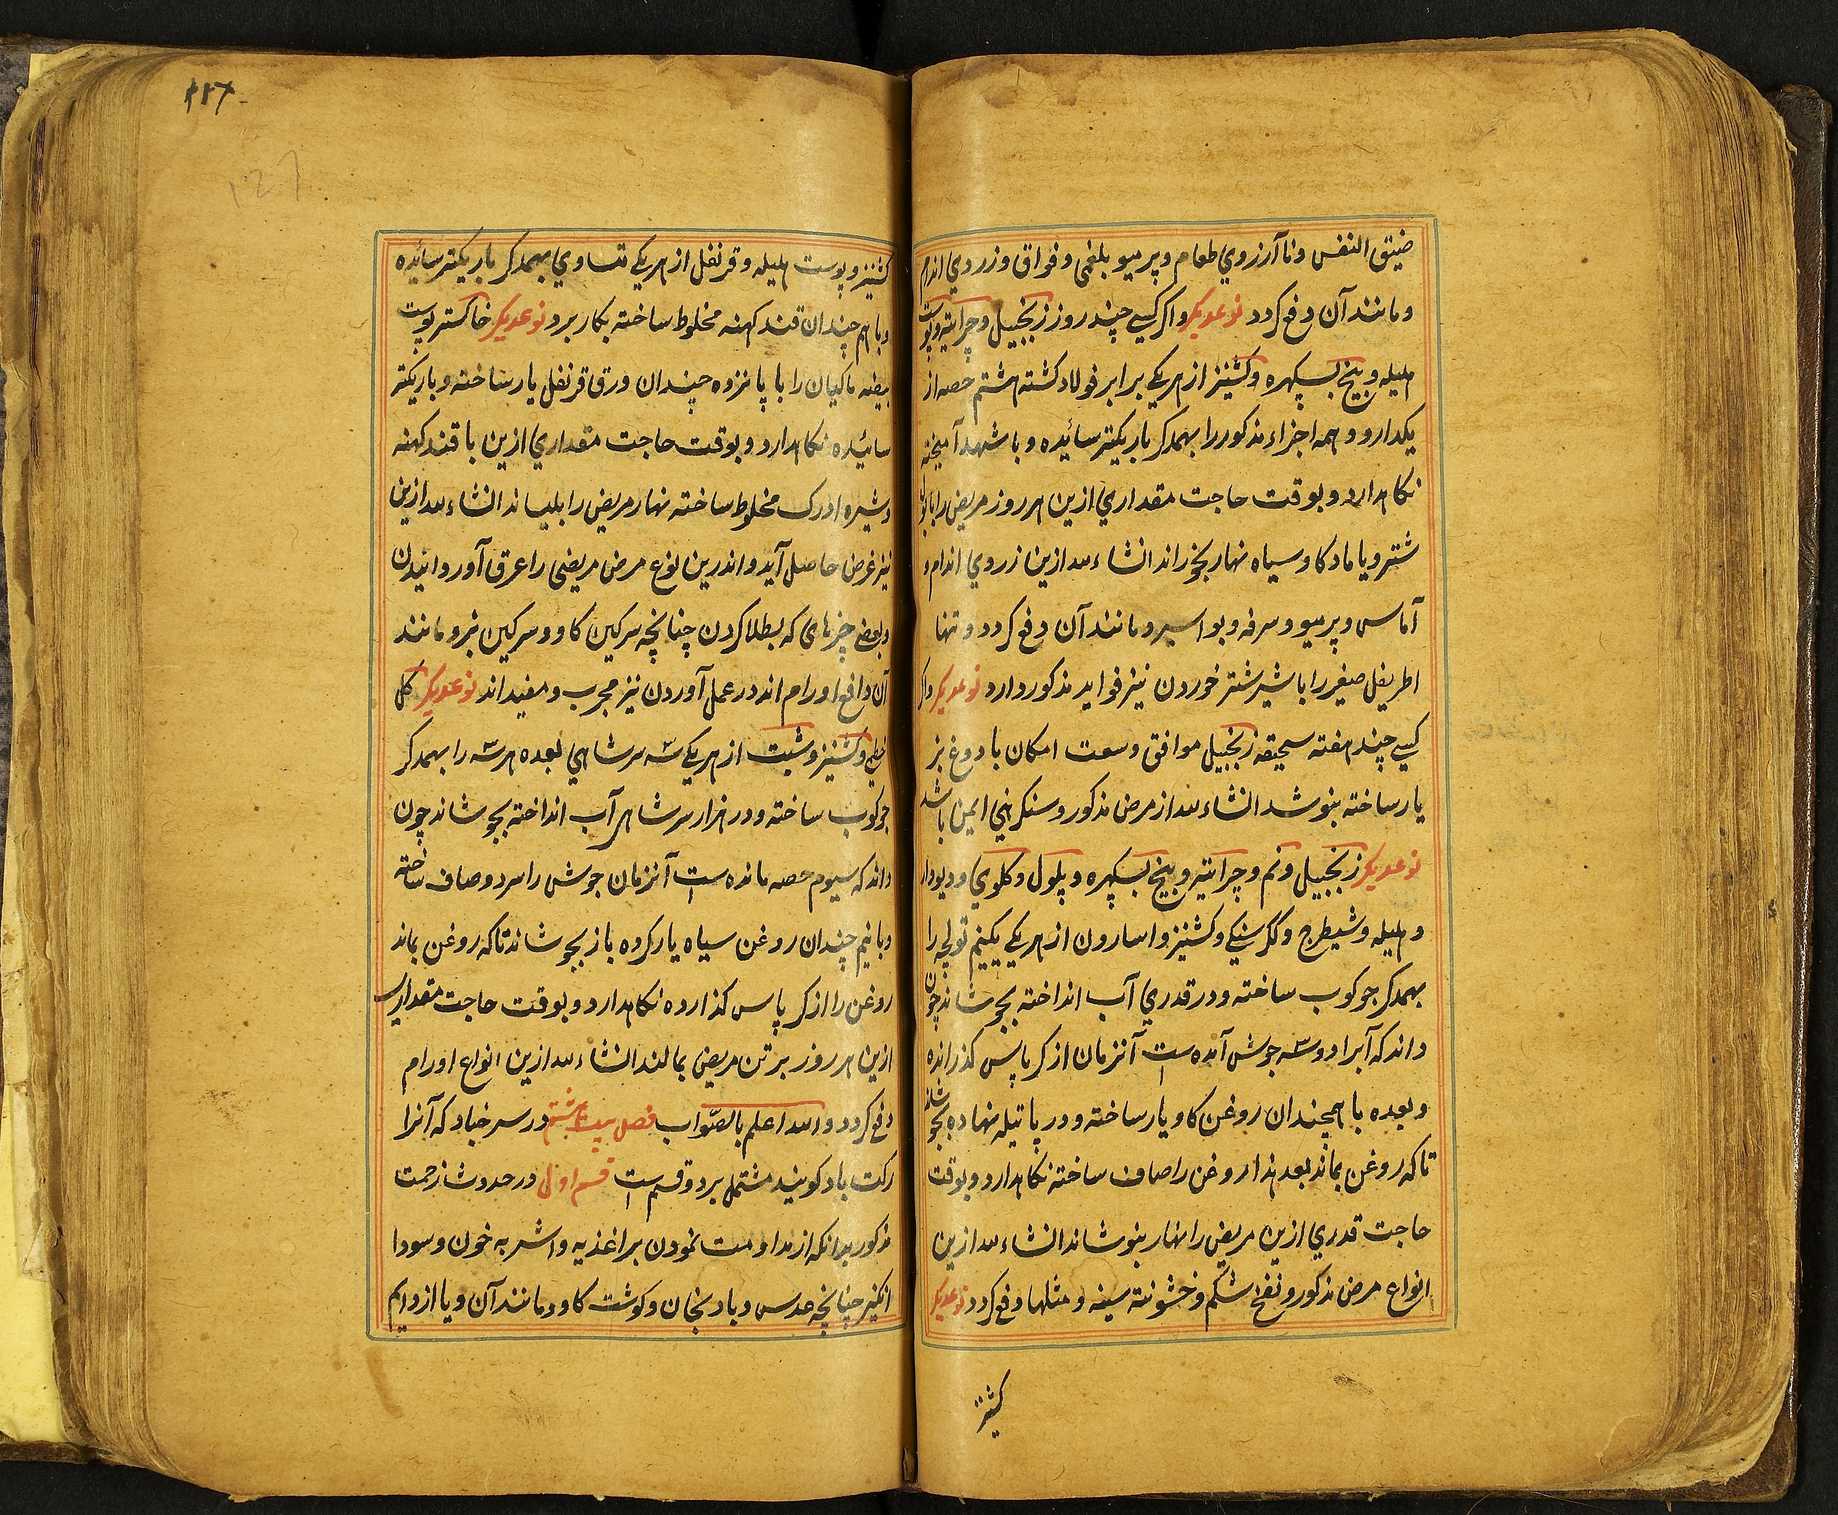 ضیق النفس ونا آرزوي طعام و پرمیو بلغمی و فواق و زردي اندام
و مانند آن دفع کردد نوعدیکر واکر کسي چند روز زنجبیل و چراتیه و پوست
هلیله و بیخ بسکهپره و کشنیز از هریکي برابر فولاد کشته هشتم حصه از
یکدارو و همه اجزاء مذکور را بهمدکر باریکتر سائیده و با شهد آمیخته
نکاهدارد و بوقت حاجت مقداري ازین هر روز مریض را با بول
شتر و یا مادکاو سیاه نهار بخوراند انشاءلله ازین زردي اندام و
آماس و پرمیو و سرفه و بواسیر و مانند آن دفع کردد و تنها
اطریفل صغیر را با شیر شتر خوردن نیز فواید مذکور دارد نوعدیکر واکر
کسي چند هفته سحیقه زنجبیل موافق وسعت امکان با دوغ بز
یار ساخته بنوشد انشاءلله از مرض مذکور و سنکرهني ایمن باشد
نوعدیکر زنجبیل و نم و چراتیه و بیخ بسکهپره و پلول و کلوي و دیودار
و هلیله و شیطرج و ککرسینکي و کشنیز و اسارون از هریکي یکنیم تولچه را
بهمدکر جوکوب ساخته و در قدري آب انداخته بجوشاند چون
داند که آبرا دو سه جوش آمده است آنزمان از کرپاس کذرانده
و بعده با همچندان روغن کاو یار ساخته و در پاتیله نهاده بجوشاند
تا که روغن بماند بعد هذا روغن را صاف ساخته نکاهدارد و بوقت
حاجت قدري ازین مریض را نهار بنوشاند انشاءلله ازین
انواع مرض مذکور و نفخ شکم و خشونته سینه و مثلها دفع کردد نوعدیکر
کشنیز
۱۲۷
127
کشنیز و پوست هلیله و قرنفل از هریکي متساوي بهمدکر باریکتر سائیده
و با هم چندان قند کهنه مخلوط ساخته بکار برد نوعدیکر خاکستر پوست
بیضه ماکیان را با پانزده چندان ورق قرنفل یار ساخته و باریکتر
سائیده نکاهدارد و بوقت حاجت مقداري ازین با قند کهنه
و شیره ادرک مخلوط ساخته نهار مریض را بلیساند انشاءلله ازین
نیز غرض حاصل آید و اندرین نوع مرض مریض را عرق آوردانیدن
و بعضے چیزهای که بطلا کردن چنانچه سرکین کاو و سرکین بز و مانند
آن دافع اورام اند در عمل آوردن نیز مجرب و مفید اند نوعدیکر کل
خطمي و کشنیز و شبت از هریکي سه سرشاهي بعده هرسه را بهمدکر
جوکوب ساخته و در هزار سرشاهي آب انداخته بجوشاند چون
داند که سیوم حصه مانده است آنزمان جوش را سرد و صاف ساخته
و با نیم چندان روغن سیاه یار کرده باز بجوشاند تا که روغن بماند
روغن را از کرپاس کذارده نکاهدارد و بوقت حاجت مقداري
ازین هر روز بر تن مریض بمالند انشاءلله ازین انواع اورام
دفع کردد والله اعلم بالصواب فصل بیست هشتم در سرخباد که آنرا
رکت باد کویند مشتمل بر دو قسم است قسم اول در حدوث زحمت
مذکور بدانکه از مداومت نمودن بر اغذیه و اشربه خون و سودا
انکیز چنانچه عدس و بادنجان و کوشت کاو و مانند آن و یا از دوایم